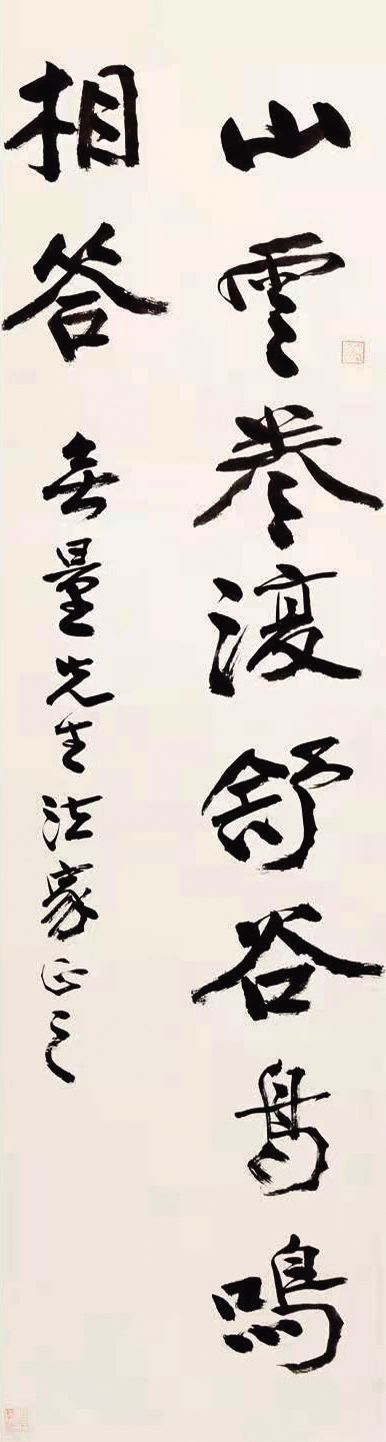 山雲卷復舒谷鳥鳴
相答 無量先生法家正之